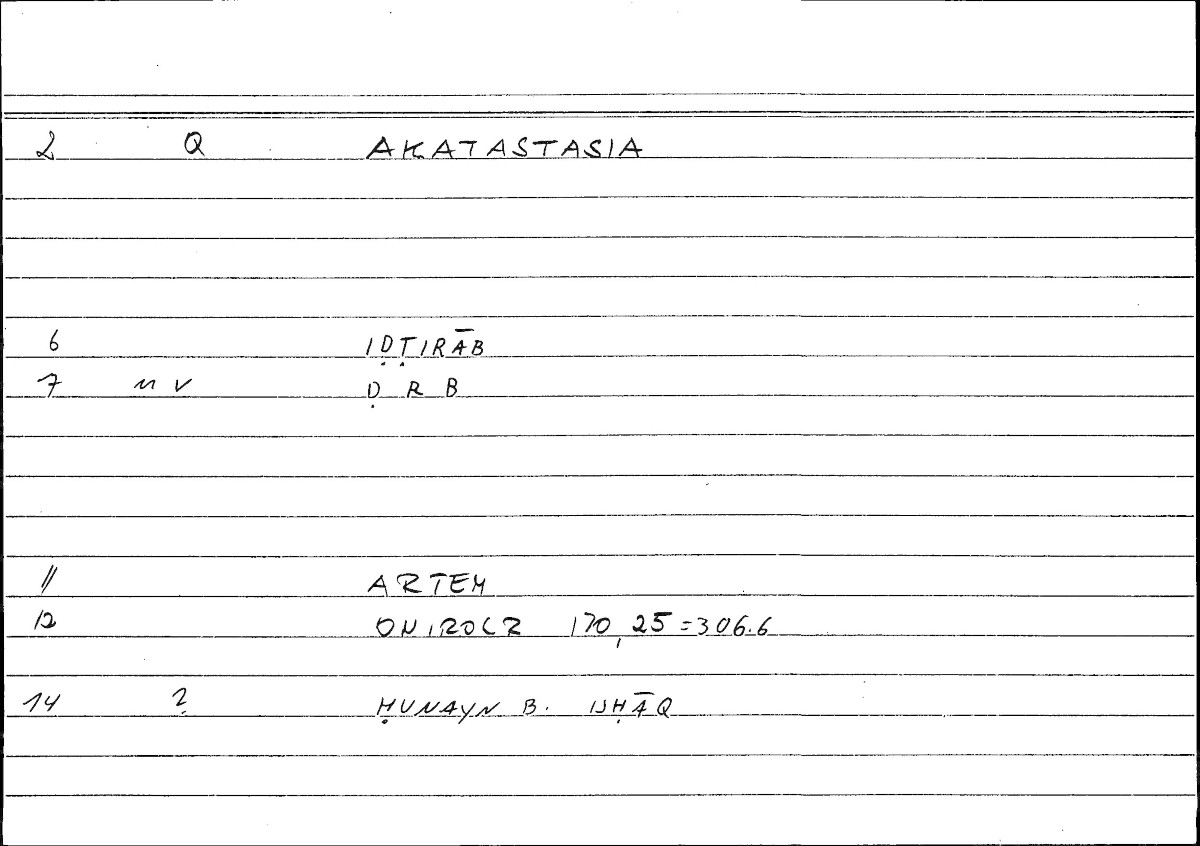 2 Q AKATASTASIA
6 IḌṬIRĀB
7 M V Ḍ R B
11 ARTEM
12 ONIROCR 170,25=306.6
14 ? ḤUNAYN B. ISḤĀQ